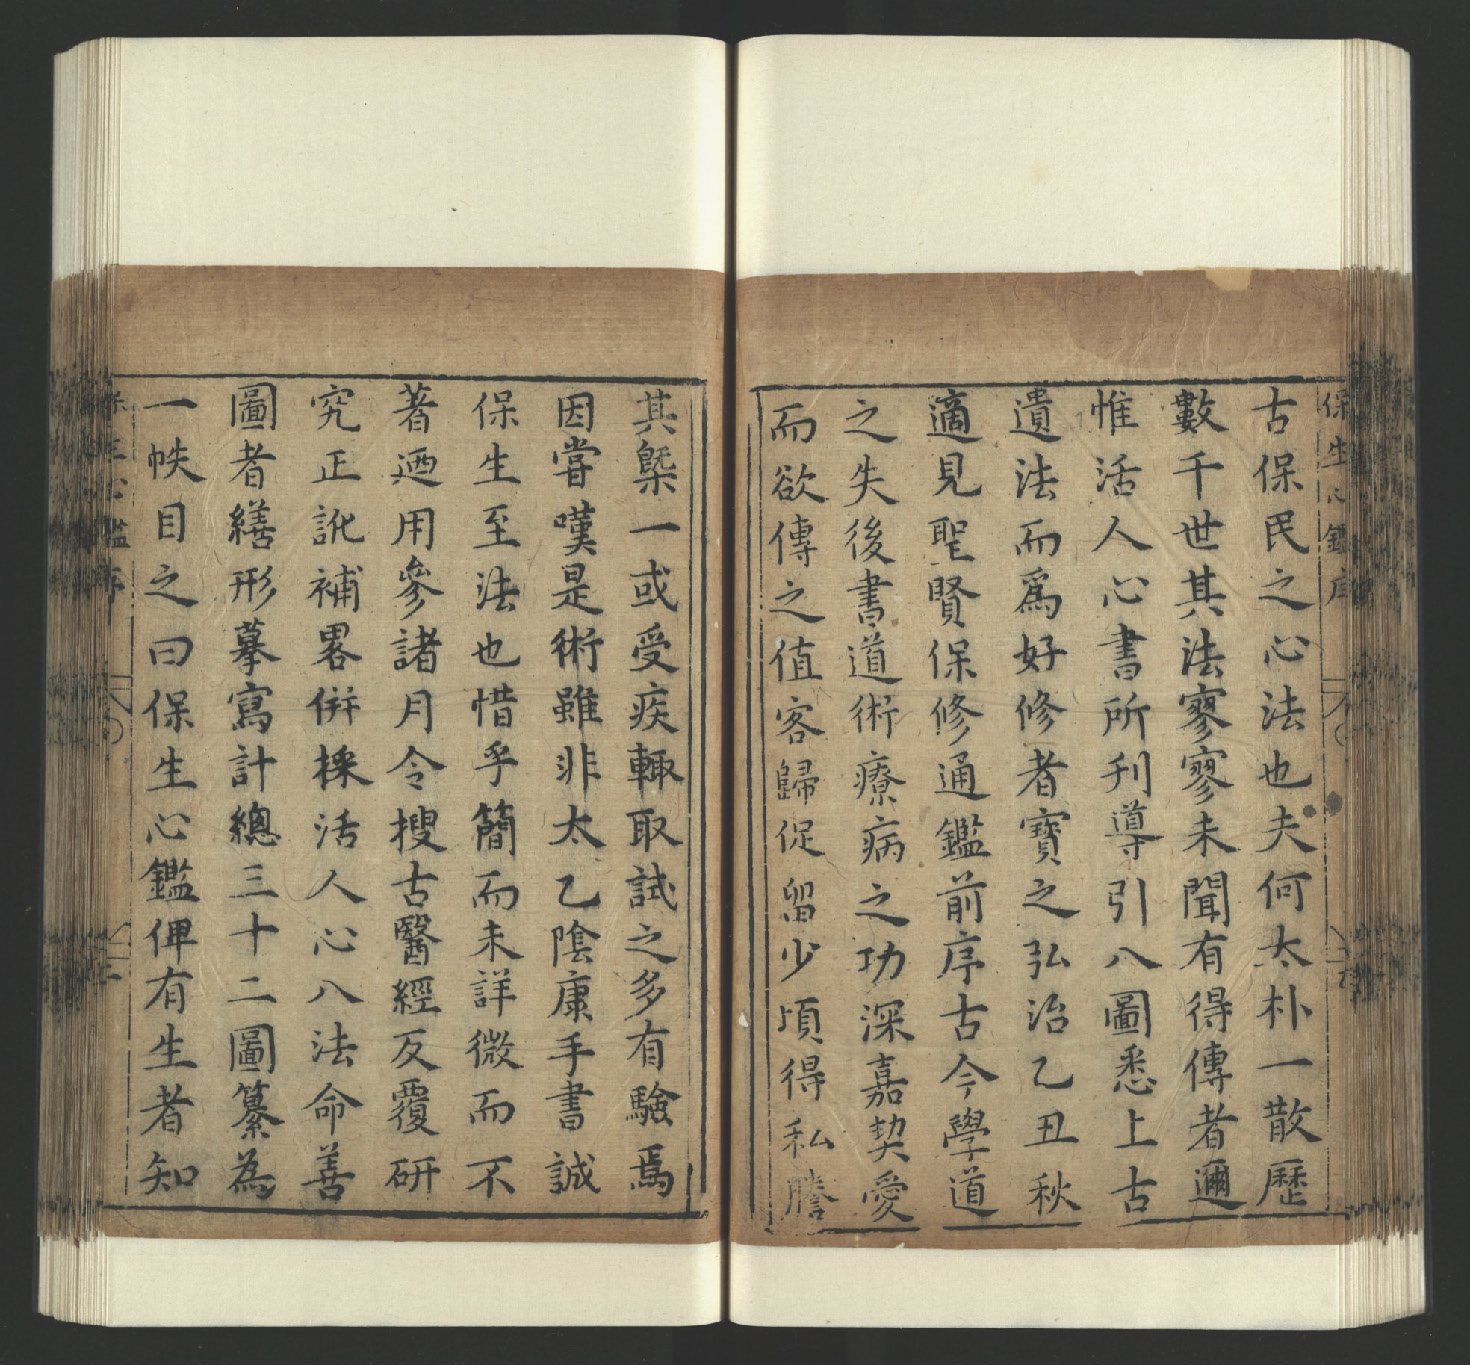 保生心鑑序
古保民之心法也夫何太朴一散歷
數千世其法寥寥未聞有得傳者邇
惟活人心書所刋導引八圖悉上古
遺法而爲好修者寳之弘治乙丑秋
適見聖賢保修通鑑前序古今學道
之失後書道術療病之功深嘉契愛
而欲傳之值客歸促留少頃得私謄
其槩一或受疾輙取試之多有驗焉
因嘗嘆是術雖非太乙陰康手書誠
保生至法也惜乎簡而未詳微而不
著迺用參諸月令搜古醫經反覆研
究正訛補畧併採活人心八法命善
圖者繕形摹寫計總三十二圖纂為
一帙目之曰保生心鑑俾有生者知